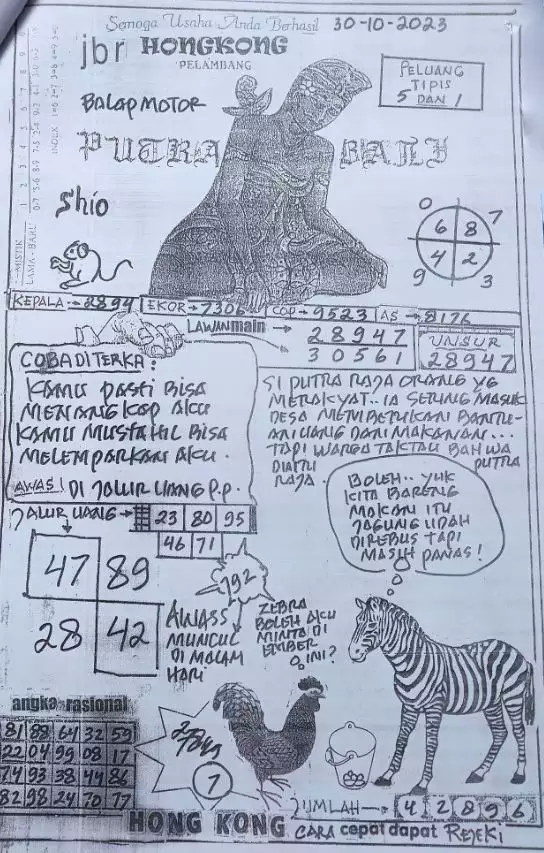 Semoga Usaha Anda Berhasil 30-10-2023
jbr HONGKONG
PELAMBANG
PELUANG
TIPIS
5 DAN 1
BALAP MOTOR
PUTRA BALI
Shio
MISTIK
LAMA - BARU
INDEX
0 7
6 8
4 2
9 3
KEPALA → 2894 EKOR → 7306 COP → 9523 AS → 8176
LAWAN main → 28947
30561
UNSUR
28947
COBA DITERKA:
KAMU PASTI BISA
MENANGKAP AKU
KAMU MUSTAHIL BISA
MELEMPARKAN AKU.
AWAS! DI JALUR UANG P.P.
SI PUTRA RAJA ORANG YG
MERAKYAT.. IA SERING MASUK
DESA MEMBERIKAN BANTU-
AN UANG DAN MAKANAN...
TAPI WARGA TAK TAU BAHWA
DIA ITU PUTRA
RAJA.
BOLEH.. YUK
KITA BARENG
MAKAN ITU
JAGUNG UDAH
DIREBUS TAPI
MASIH PANAS!
JALUR UANG → 23 80 95
46 71
47 89
28 42
792
AWASS
MUNCUL
DI MALAM
HARI
ZEBRA
BOLEH AKU
MINTA DI
EMBER
INI?
angka rasional
81 88 64 32 59
22 04 99 08 17
74 93 38 44 86
82 98 24 70 77
7
JUMLAH → 4 2 8 9 6
HONG KONG CARA cepat dapat REJEKI